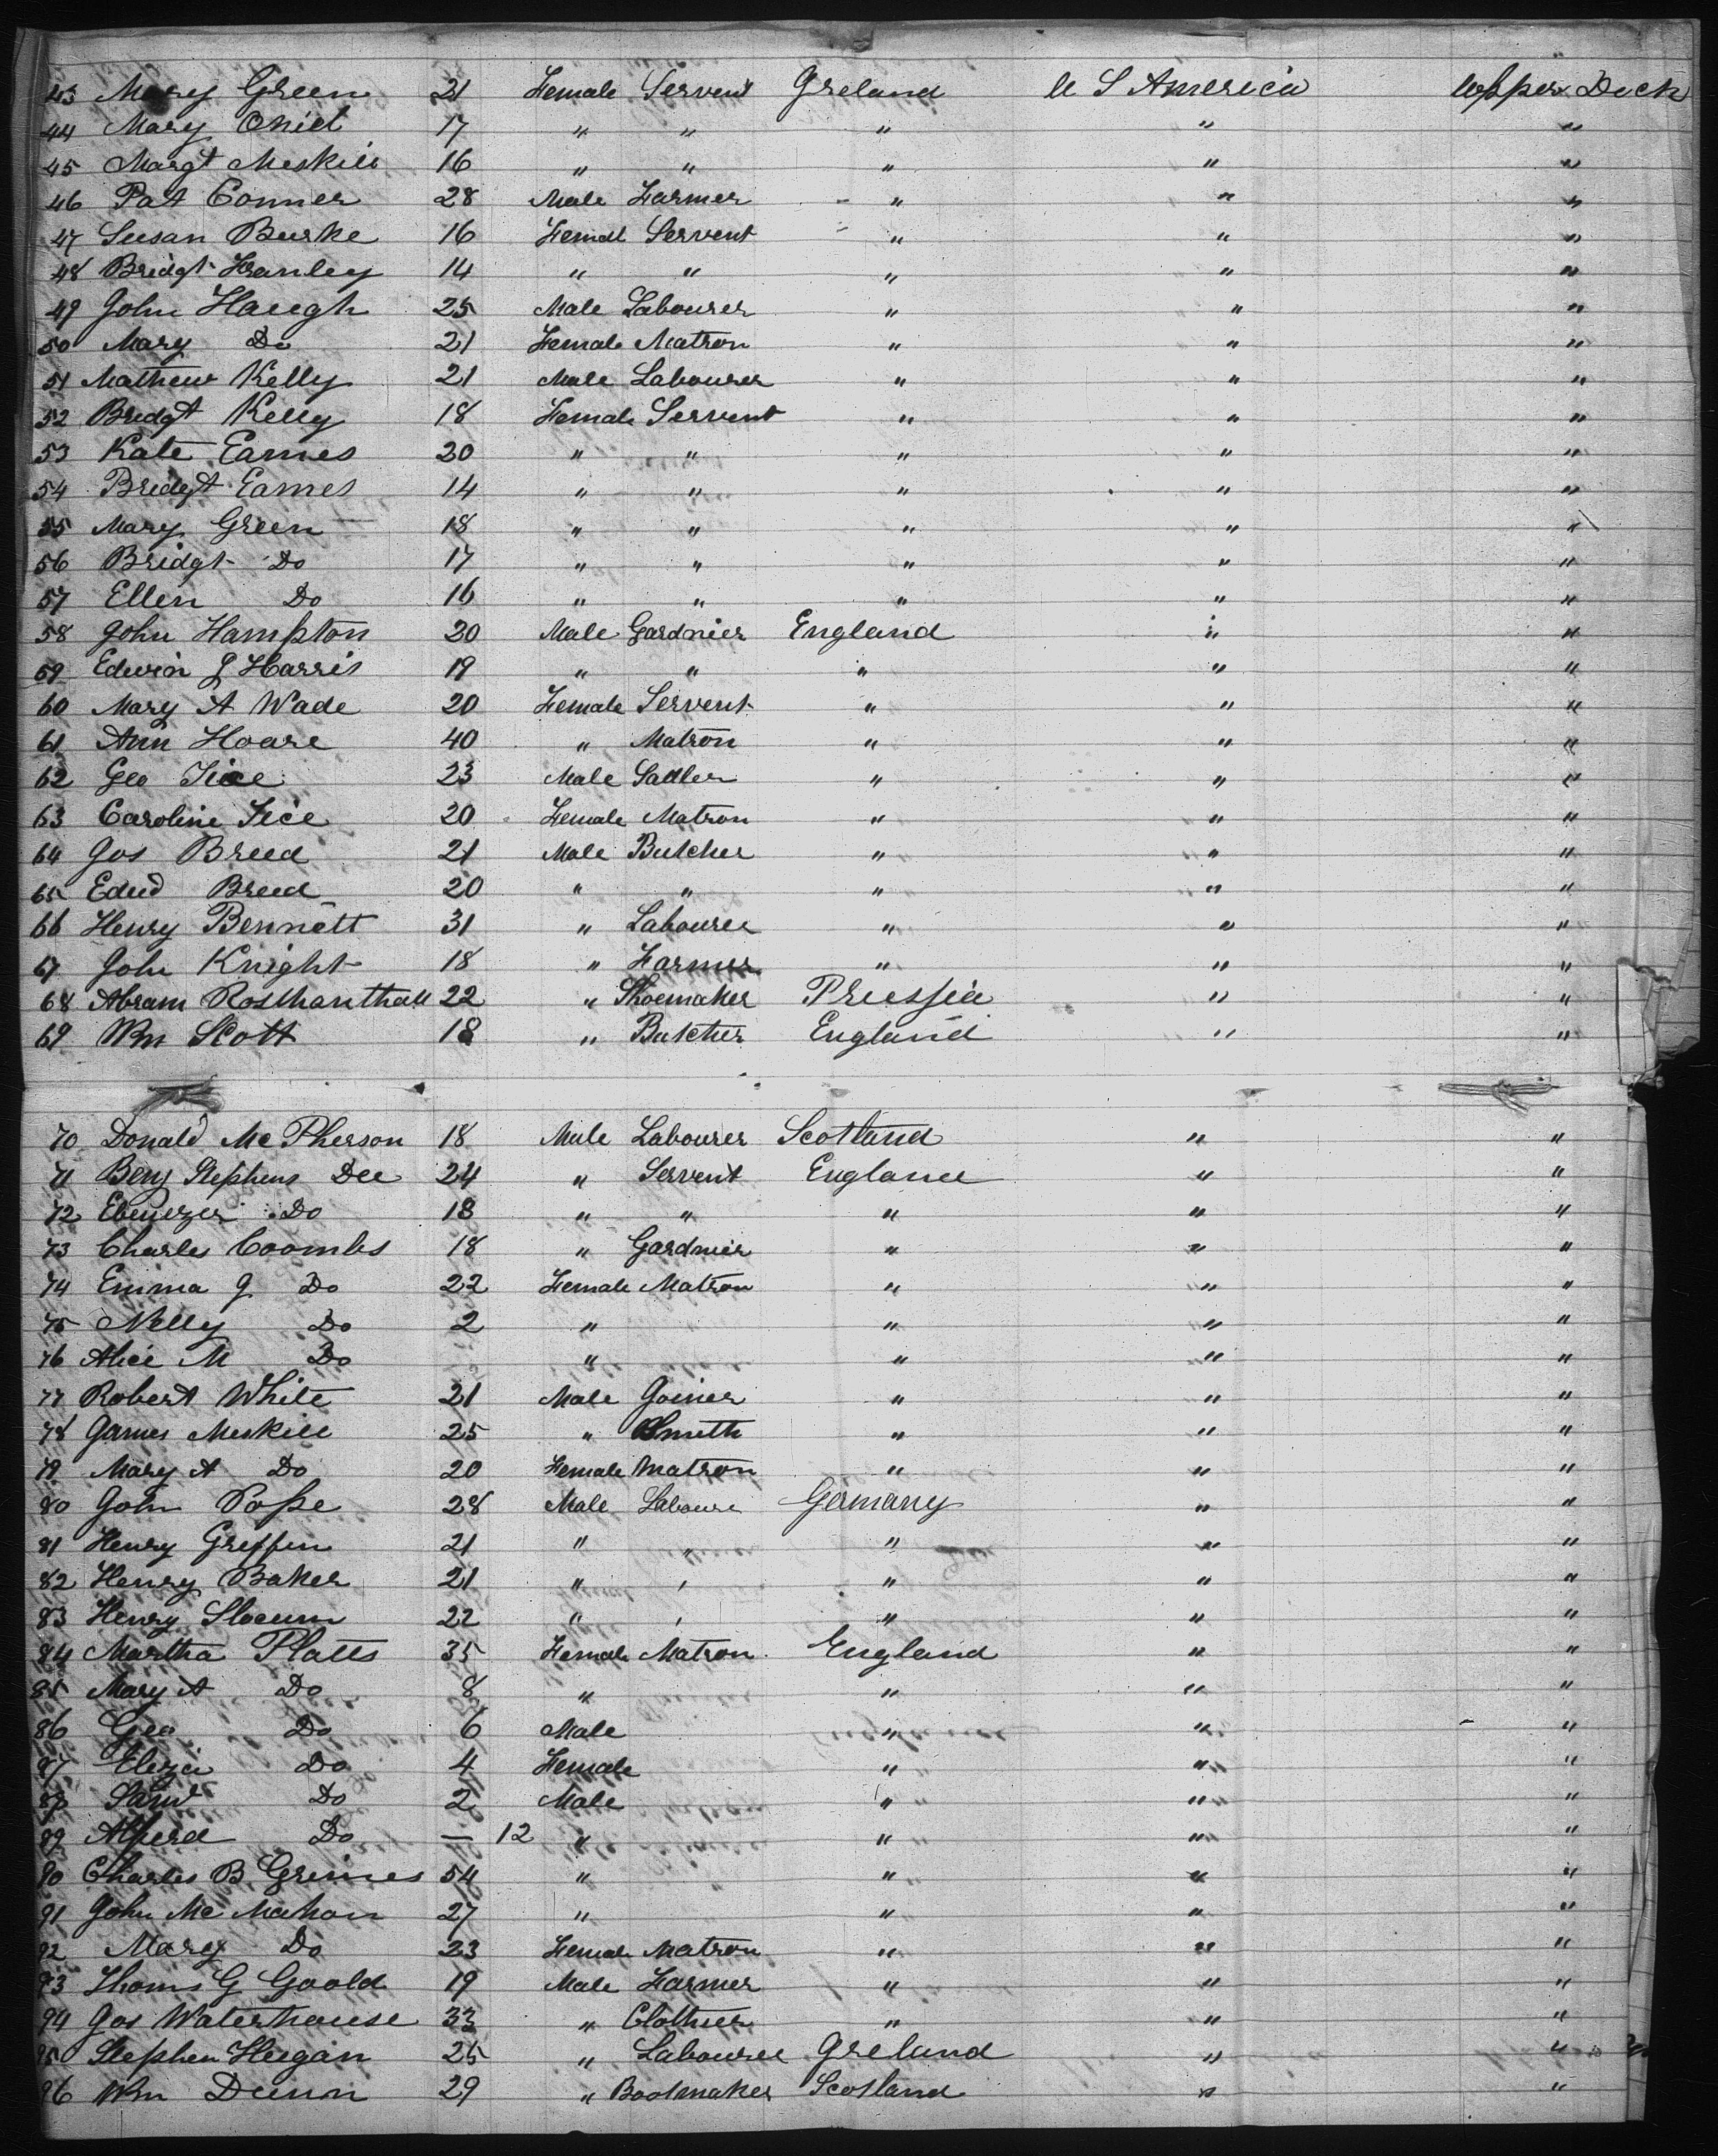 43 Mary Green 21 Female Servent Ireland U S America Upper Deck
44 Mary Oniel 17 " " " " "
45 Margt Meskill 16 " " " " "
46 Pat Conner 28 Male Farmer " " "
47 Susan Burke 16 Femal Servent " " "
48 Bridgt Franley 14 " " " " "
49 John Haugh 25 Male Labourer " " "
50 Mary Do 21 Female Matron " " "
51 Mathew Kelly 21 Male Labourer " " "
52 Bridgt Kelly 18 Female Servent " " "
53 Kate Eames 20 " " " " "
54 Bridgt Eames 14 " " " " "
55 Mary Green 18 " " " " "
56 Bridgt Do 17 " " " " "
57 Ellen Do 16 " " " " "
58 John Hampton 20 Male Gardnier England " "
59 Edwin J Harris 19 " " " " "
60 Mary A Wade 20 Female Servent " " "
61 Ann Hoare 40 " Matron " " "
62 Geo Tice 23 Male Sadler " " "
63 Caroline Tice 20 Female Matron " " "
64 Jos Breed 21 Male Butcher " " "
65 Edwd Breed 20 " " " " "
66 Henry Bennett 31 " Labourer " " "
67 John Knight 18 " Farmer " " "
68 Abram Rosthanthall 22 " Shoemaker Prussia " "
69 Wm Scott 18 " Butcher England " "
70 Donald McPherson 18 Male Labourer Scotland " "
71 Benj Stephens Dee 24 " Servent England " "
72 Ebenezer Do 18 " " " " "
73 Charles Coombs 18 " Gardnier " " "
74 Emma J Do 22 Female Matron " " "
75 Nelly Do 2 " " " "
76 Alice M Do " " " "
77 Robert White 21 Male Joiner " " "
78 James Meskill 25 " Smith " " "
79 Mary A Do 20 Female Matron " " "
80 John Pope 28 Male Laboure Germany " "
81 Henry Greffen 21 " " " " "
82 Henry Baker 21 " " " " "
83 Henry Slocum 22 " " " " "
84 Martha Platts 35 Female Matron England " "
85 Mary A Do 8 " " " "
86 Geo Do 6 Male " " "
87 Eliza Do 4 Female " " "
88 Saml Do 2 Male " " "
89 Alferd Do — 12 " " " "
90 Charles B Grimes 54 " " " "
91 John McMahon 27 " " " "
92 Mary Do 23 Female Matron " " "
93 Thoms G Goold 19 Male Farmer " " "
94 Jos Waterhouse 33 " Clothier " " "
95 Stephen Hegan 25 " Labourer Ireland " "
96 Wm Dunn 29 " Bootmaker Scotland " "